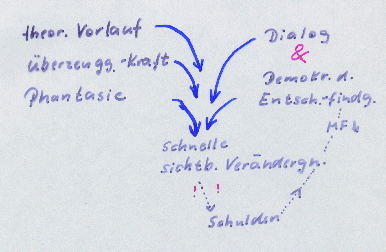 theor. Vorlauf
Überzeugg.-Kraft
Phantasie
Dialog
&
Demokr. d.
Entsch.-findg.
MF↓
schnelle
sichtb. Verändergn.
! !
Schulden